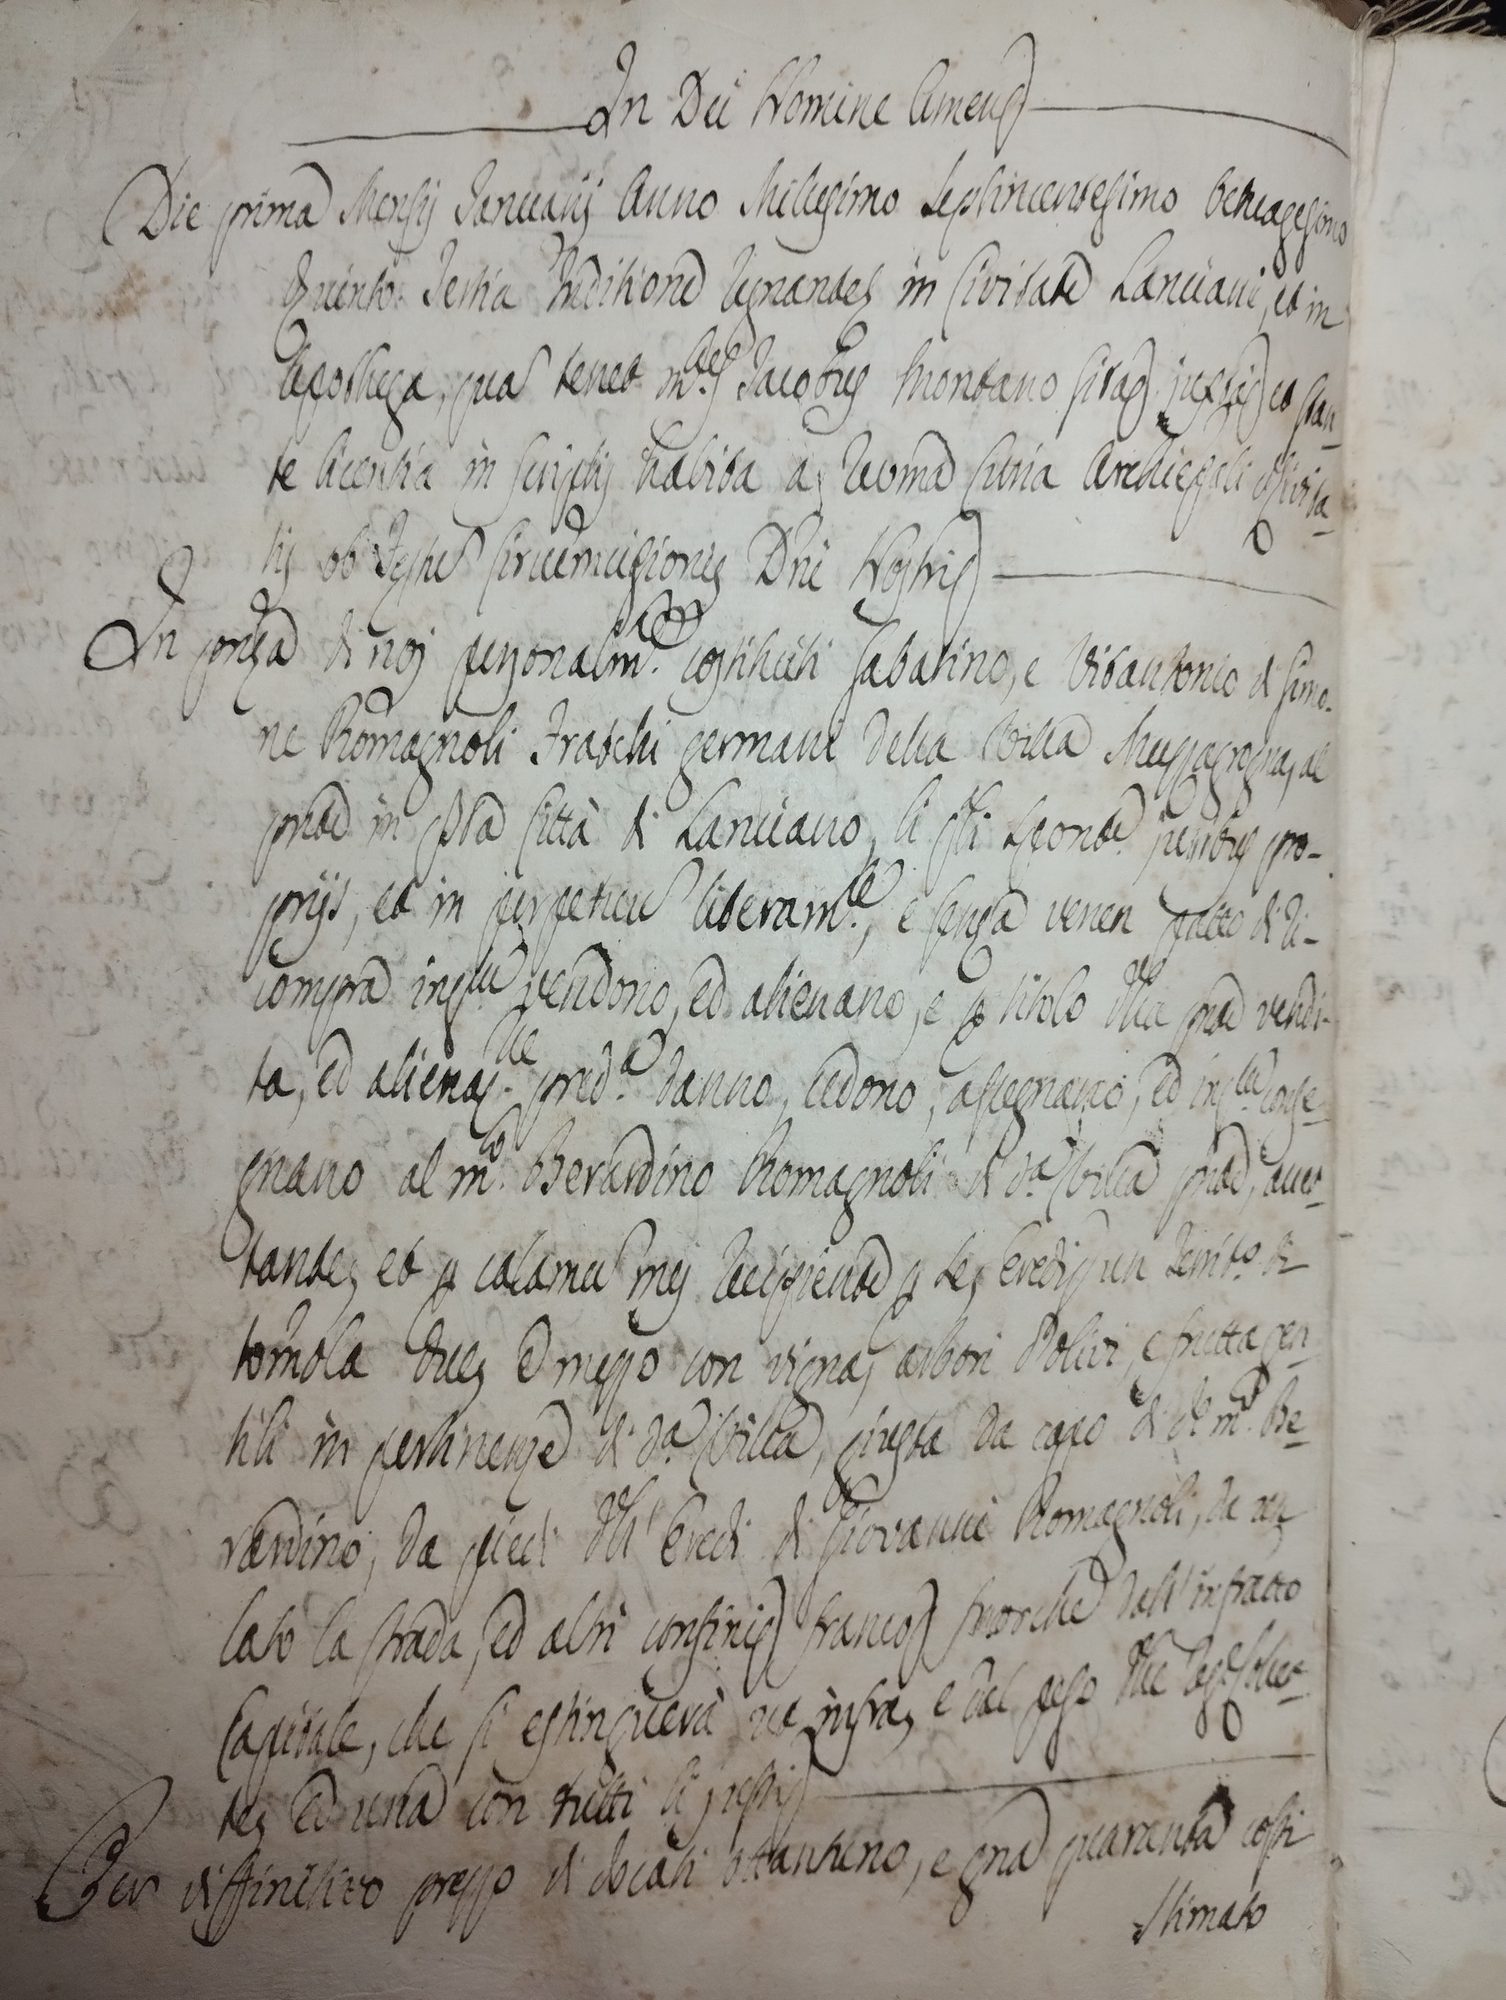 In Dei Nomine Amen
Die prima Mensis Januarij Anno Millesimo Septincentesimo octuagesimo
quinto Tertia Inditione Regnante in Civitate Lanciani, et in
Apothega, qua tenet m.r Jacobus Montano sita juxta et stan-
te licentia in scriptis habita a Rev.ma Curia Archiep.li Civita-
tis ob Festu Circumcisionis Dni Nostri
In pnza di noi personalm.te costituiti Sabatino, e Vitantonio di Simo-
ne Romagnoli Fratelli germani della Villa Mozzagrogna, al
pnte in q.sta Città di Lanciano, li q.li sponte p
prijs, et in perpetuu liberam.te, e senza verun patto di ri-
compra vendono, ed alienano, e p titolo della pnte vendi-
ta, ed alienaz.ne pred.a danno, cedono, assegnano, ed conse-
gnano al m.co Berardino Romagnoli di d.a Villa pnte, accet-
tante, et p calamu mei recipiente p se, eredi un territ.o di
tomola due, e mezzo con vigna, arbori d'olivi, e frutta gen-
tili in pertinenze di d.a Villa, giusta da capo di d.o m.co Be-
rardino, da piedi dell' Eredi di Giovanni Romagnoli, da un
lato la strada, ed altri confini franco fuorche dall' infratto
Capitale, che si estinguerà ut infra, e dal peso delle
te, ed una con tutti li
Per diffinitivo prezzo di docati ottantuno, e gna quaranta così
stimato